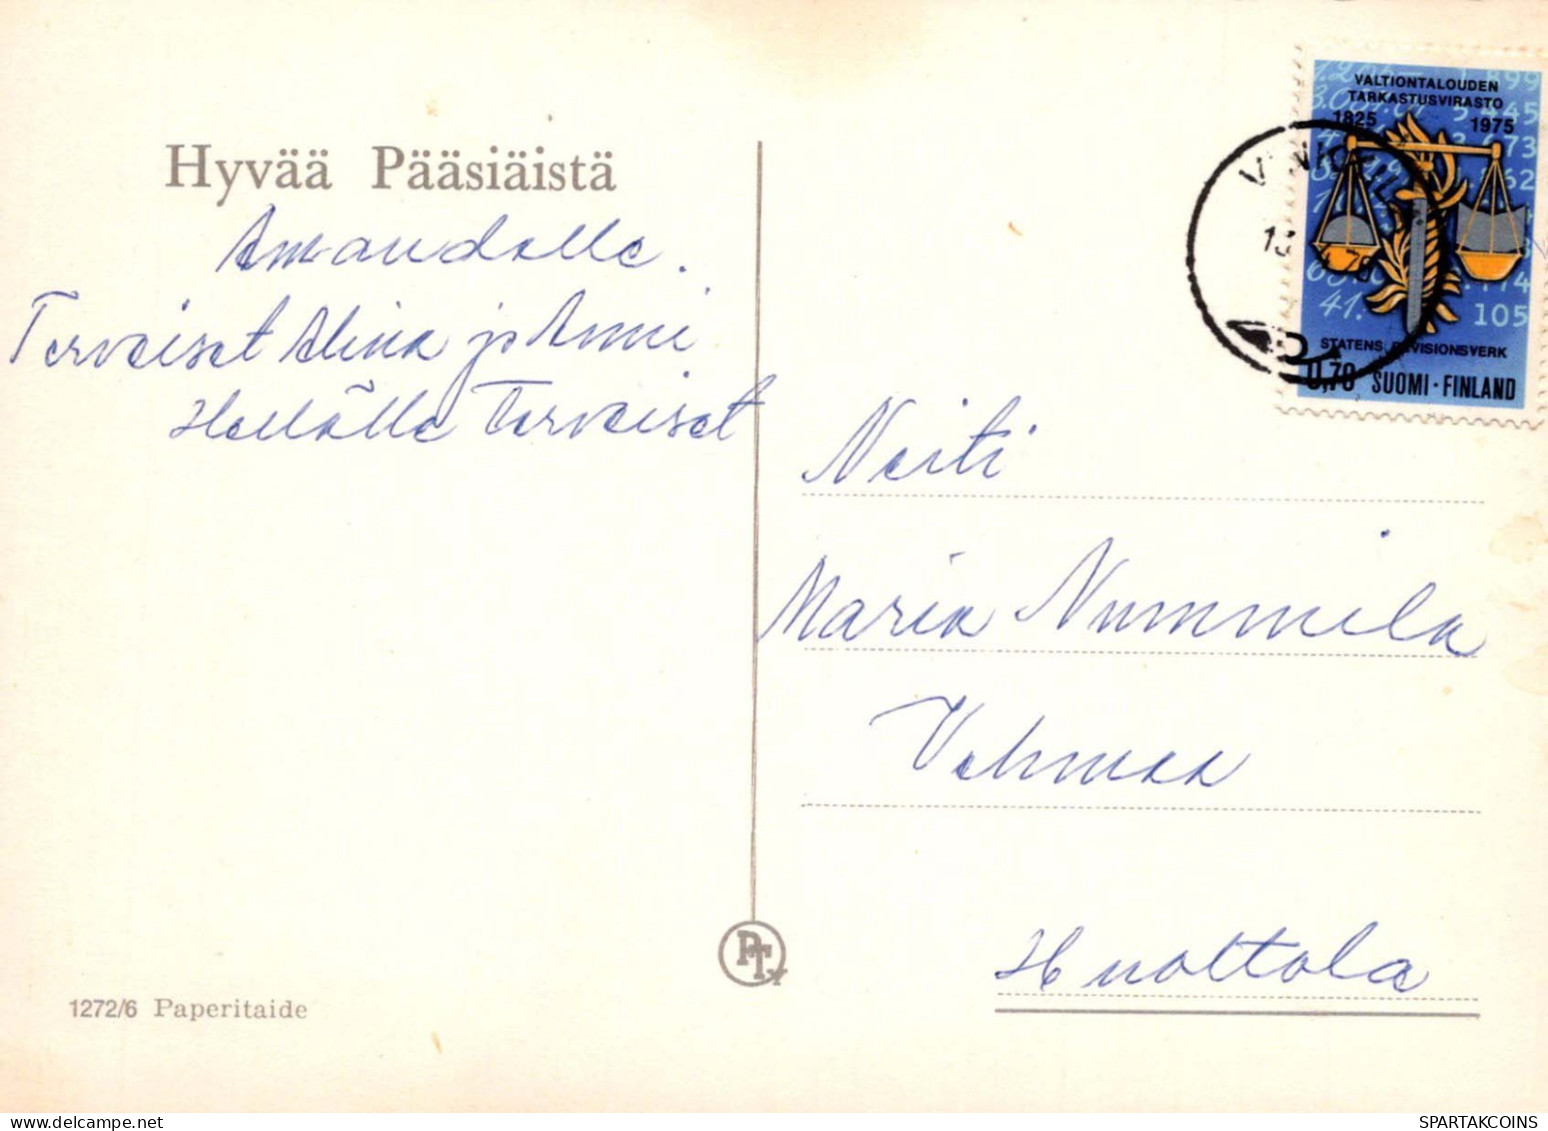 Hyvää Pääsiäistä
Amandalle.
Terveiset Alina ja Anni
Hellälle Terveiset
VALTIONTALOUDEN
TARKASTUSVIRASTO
1825 1975
41. 105
STATENS REVISIONSVERK
0,70 SUOMI·FINLAND
Neiti
Maria Nummila
Vehmaa
Huottola
PT
1272/6 Paperitaide
delcampe.net
SPARTAKCOINS